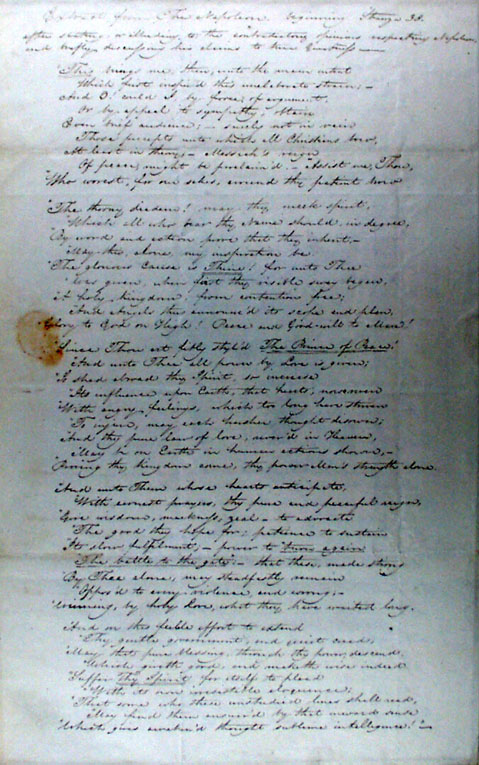 Extract from The Napoleon, beginning Stanza 38.
after stating & alluding to the contradictory opinions respecting Napoleon,
and briefly discussing his claims to true Greatness —
"This brings me, then, unto the main intent
Which first inspir'd this unelaborate strain; —
And O! could I, by force of argument,
Or by appeal to sympathy, obtain
Even brief audience; — surely not in vain
Those precepts unto which all Christians bow,
At least in theory — Messiah's reign
Of peace, might be proclaim'd. — Assist me, Thou,
"Who worest, for our sakes, around thy patient brow
"The thorny diadem! may thy meek spirit,
Which all who bear thy Name should, in degree,
"By word and action prove that they inherit, —
May this, alone, my inspiration be
"The glorious Cause is Thine! for unto Thee
Was given, when first thy visible sway began,
"A holy kingdom, from contention free;
And Angels thus announc'd its scope and plan,
Glory to God on High! Peace and Good-will to Man!
Since Thou art fitly styl'd The Prince of Peace!
And unto Thee all power by Love is given;
"So shed abroad thy Spirit, so increase
Its influence upon Earth, that hearts, now riven
"With angry feelings, which too long have striven
To injure, may each harsher thought disown;
And thy pure law of love, avow'd in Heaven,
May be on Earth in human actions shown, —
"Proving thy kingdom come, thy power Man's strength alone
And unto Them whose hearts anticipate,
With earnest prayers, thy pure and peaceful reign,
"Give wisdom, meekness, zeal — to advocate
The good they hope for; patience to sustain
"Its slow fulfilment; — power to turn again
The battle to the gate; — that these, made strong
By Thee alone, may steadfastly remain
Oppos'd to every violence, and wrong; —
"Winning, by holy love, what they have wanted long.
And on this feeble effort to extend
Thy gentle government, and quiet creed,
"May that pure blessing, through thy power, descend,
Which giveth good, and maketh wise indeed
"Suffer Thy Spirit for itself to plead
With its own irresistible eloquence;
"That some who these unstudied lines shall read,
May find them answer'd by that inward sense
"Which gives awaken'd thought sublime intelligence! —